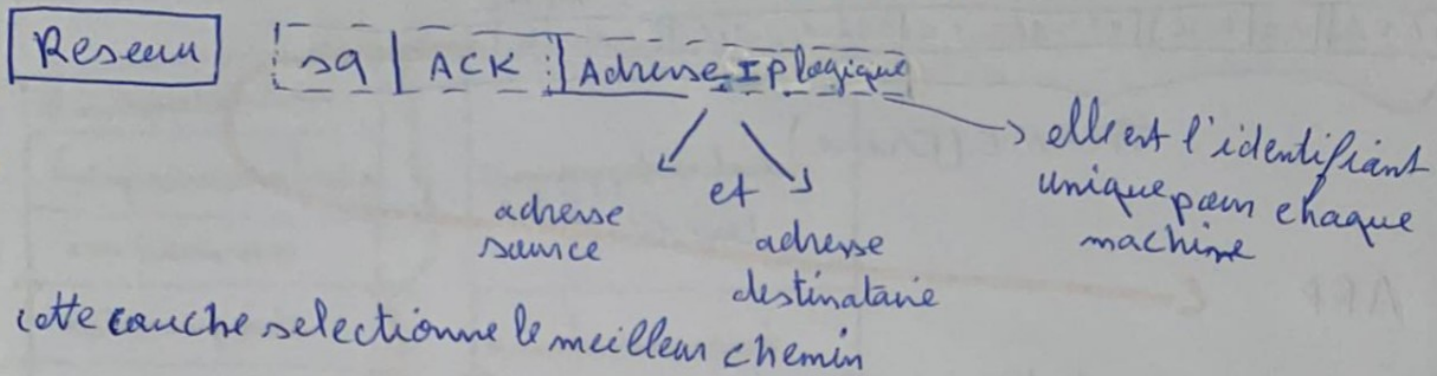 Reseau
sq | ACK | Adresse IP logique
→ elle est l'identifiant
unique pour chaque
machine
et
adresse
source
adresse
destinataire
cette couche selectionne le meilleur chemin